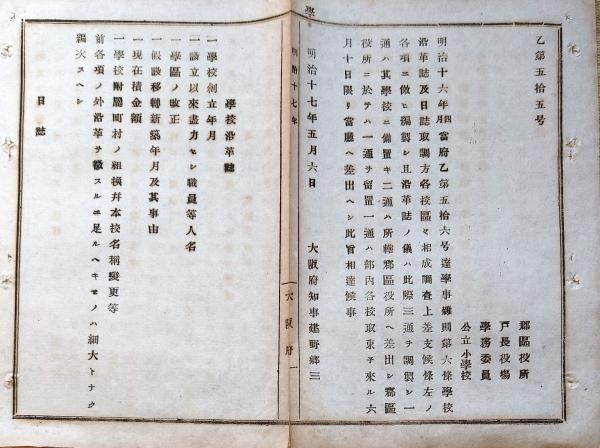 乙第五拾五号
郡區役所
戸長役塲
學務委員
公立小學校
明治十六年四月當府乙第五拾六号達學事雜則第六條學校
沿革誌及日誌取調方各校區々相成調査上差支候條左ノ
各項ニ傚ヒ編製シ且沿革誌ノ儀ハ此際三通ヲ調製シ一
通ハ其學校ニ備置キ二通ハ所轄郡區役所ヘ差出シ郡區
役所ニ於テハ一通ヲ留置一通ハ部内各校取束子來ル六
月十日限リ當廳ヘ差出ヘシ此旨相達候事
明治十七年五月六日
大阪府知事建野郷三
學
明治十七年
大阪府
學校沿革誌
一學校創立年月
一設立以來盡力セシ職員等人名
一學區ノ改正
一假設移轉新築年月及其事由
一現在積金額
一學校附屬町村ノ組換幷本校名稱變更等
前各項ノ外沿革ヲ徴スルニ足ルヘキモノハ細大トナク
編次スヘシ
日誌